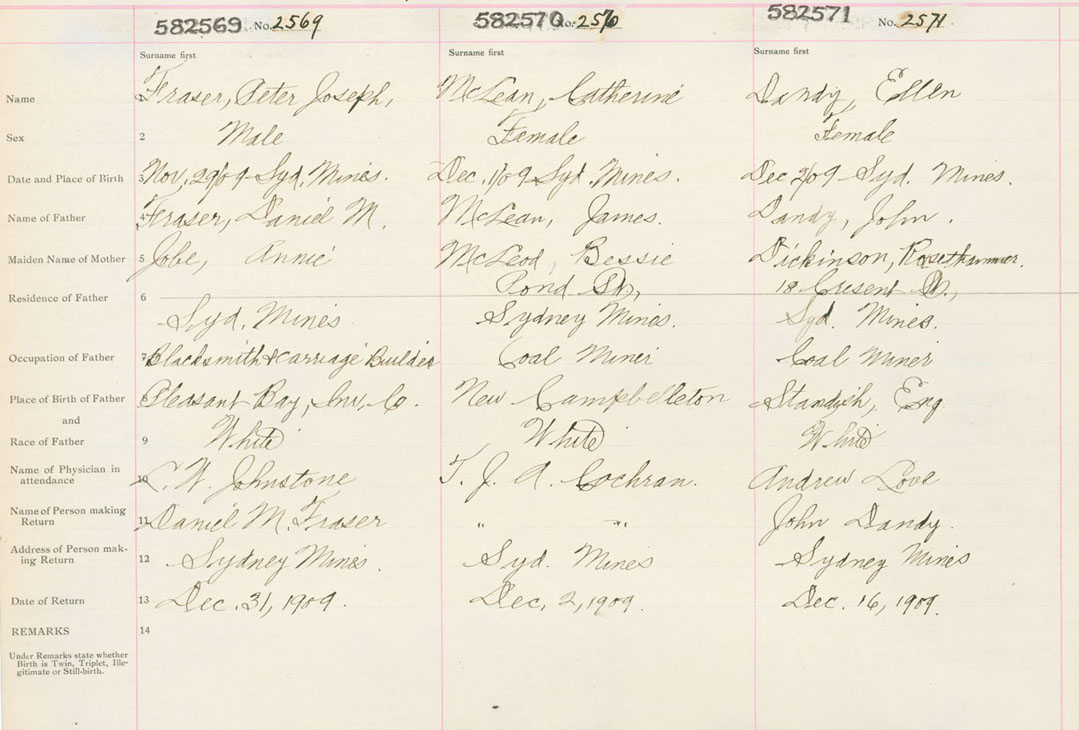 582569 No. 2569 582570 No. 2570 582571 No. 2571
Surname first Surname first Surname first
Name 1 Fraser, Peter Joseph, McLean, Catherine Dandy, Ellen
Sex 2 Male Female Female
Date and Place of Birth 3 Nov, 29/09 Syd. Mines. Dec. 1/09 Syd. Mines. Dec 2/09 Syd. Mines.
Name of Father 4 Fraser, Daniel M. McLean, James. Dandy, John.
Maiden Name of Mother 5 Jobe, Annie McLeod, Bessie Dickinson,
Pond St, 18 Cresent St,
Residence of Father 6
Syd. Mines Sydney Mines. Syd. Mines.
Occupation of Father 7 Blacksmith & Carriage Builder Coal Miner Coal Miner
Place of Birth of Father 8 Pleasant Bay, Inv. Co. New Campbellton Standish, Eng.
and
Race of Father 9 White White White
Name of Physician in
attendance 10 L. W. Johnstone T. J. A. Cochran. Andrew Love
Name of Person making
Return 11 Daniel M. Fraser " " John Dandy.
Address of Person mak-
ing Return 12 Sydney Mines. Syd. Mines Sydney Mines
Date of Return 13 Dec. 31, 1909. Dec, 2, 1909. Dec. 16, 1909.
REMARKS 14
Under Remarks state whether
Birth is Twin, Triplet, Ille-
gitimate or Still-birth.